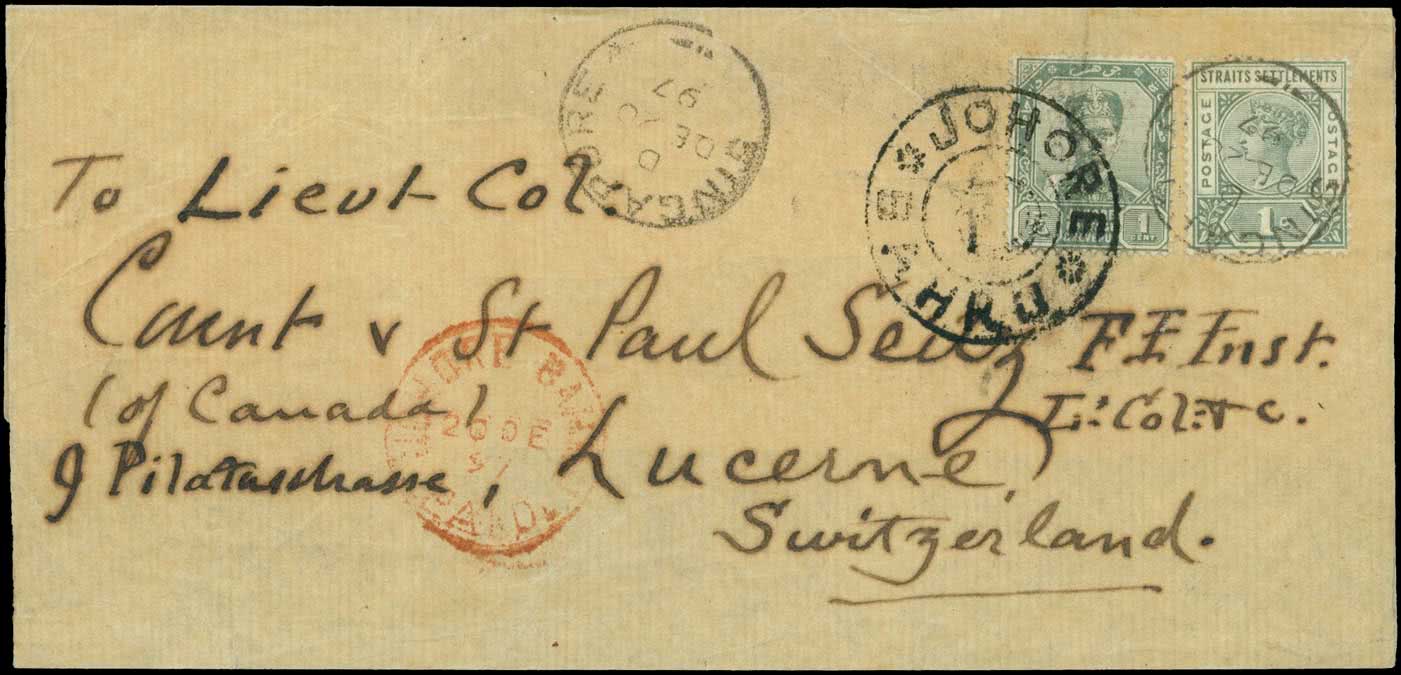 To Lieut Col.
Count v St Paul Seilz F I Inst.
(of Canada) Lt: Col: &c.
9 Pilatusstrasse, Lucerne,
Switzerland.
SINGAPORE
D
DE 20
97
JOHORE
STRAITS SETTLEMENTS
POSTAGE POSTAGE
1c
1
CENT
PAID
20 DE
97